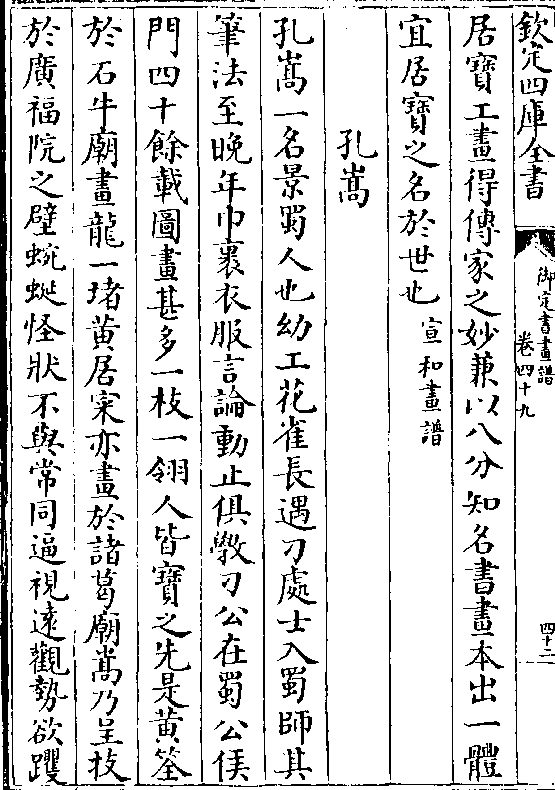 欽定四庫全書
御定書畫譜
卷四十九
四十二
居寶工畫得傳家之妙兼以八分知名書畫本出一體
宜居寶之名於世也宣和畫譜
孔嵩
孔嵩一名景蜀人也幼工花雀長遇刁處士入蜀師其
筆法至晚年巾裹衣服言論動止俱斆刁公在蜀公侯
門四十餘載圖畫甚多一枝一翎人皆寶之先是黄筌
於石牛廟畫龍一堵黄居寀亦畫於諸葛廟嵩乃呈技
於廣福院之壁蜿蜒怪狀不與常同逼視遠觀勢欲躩